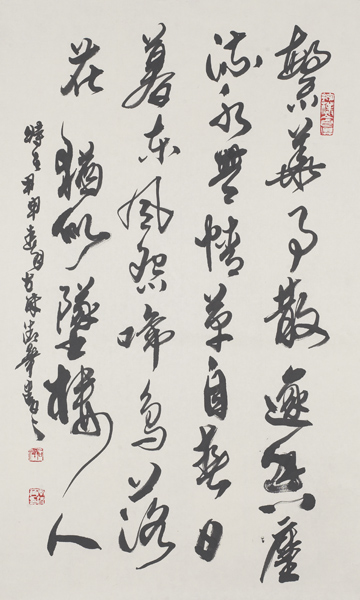 繁華事散逐香塵
流水無情草自春日
暮東風怨啼鳥落
花猶似墜樓人